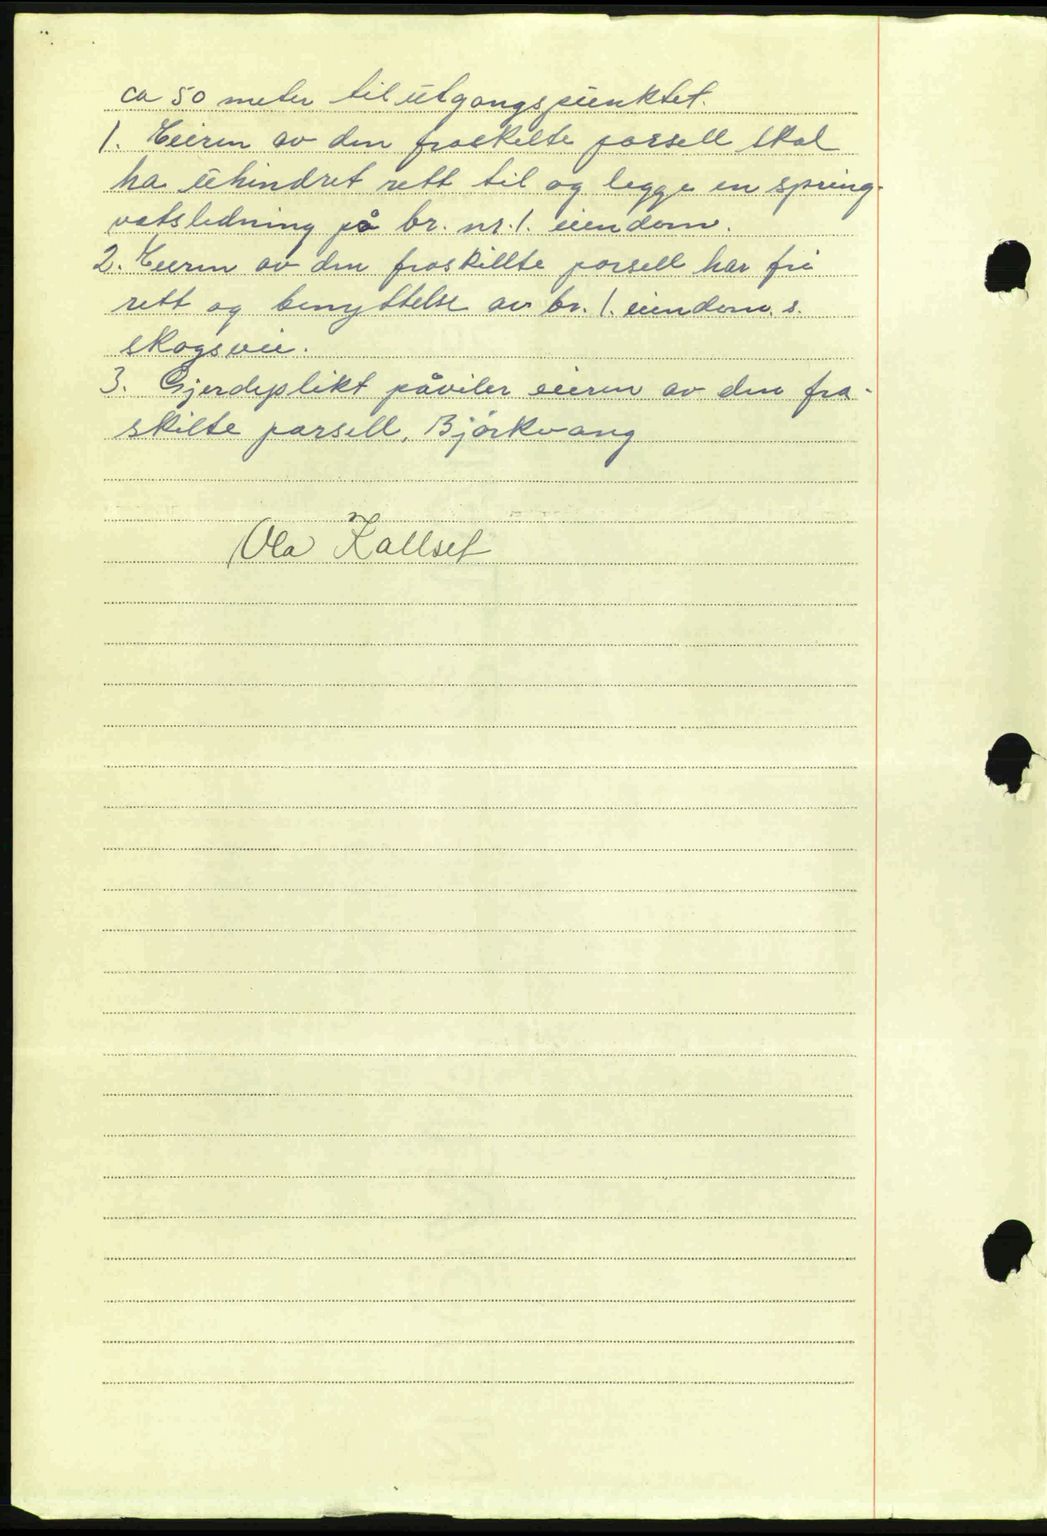 ca 50 meter til utgangspunktet.
1. Eieren av den fraskilte parsell skal
ha uhindret rett til og legge en spring-
vatsledning på br. nr. 1. eiendom.
2. Eieren av den fraskillte parsell har fri
rett og benyttelse av br. 1. eiendom. s.
skogsvei.
3. Gjerdeplikt påviler eieren av den fra-
skilte parsell, Bjørkvang
Ola Kallset